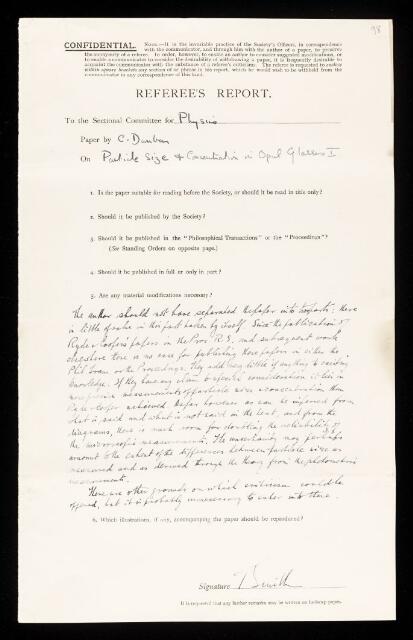 98
CONFIDENTIAL. NOTE.—It is the invariable practice of the Society's Officers, in correspondence
with the communicator, and through him with the author of a paper, to preserve
the anonymity of a referee. In order, however, to enable an author to consider suggested modifications, or
to enable a communicator to consider the desirability of withdrawing a paper, it is frequently desirable to
acquaint the communicator with the substance of a referee's criticism. The referee is requested to enclose
within square brackets any section of or phrase in his report, which he would wish to be withheld from the
communicator in any correspondence of this kind.
REFEREE'S REPORT.
To the Sectional Committee for Physics
Paper by C. Dunbar
On Particle Size & Concentration in Opal Glasses I
1. Is the paper suitable for reading before the Society, or should it be read in title only?
2. Should it be published by the Society?
3. Should it be published in the "Philosophical Transactions" or the "Proceedings"?
(See Standing Orders on opposite page.)
4. Should it be published in full or only in part?
5. Are any material modifications necessary?
The author should not have separated the paper into two parts; there
is little of value in this part taken by itself. Since the publication of
Ryde & Cooper's papers in the Proc R.S. and subsequent work
elsewhere there is no case for publishing these papers in either the
Phil Trans or the Proceedings. They add very little if anything to existing
knowledge. If they have any claim to specific consideration it lies in
measurements of particle size & concentration than
Ryde & Cooper achieved. As far however as can be inferred from
what is said and what is not said in the text, and from the
diagrams, there is much room for doubting the reliability of
the microscopic measurements. The uncertainty may perhaps
amount to the extent of the differences between particle size as
measured and as derived through the theory from the photometric
measurements.
There are other grounds on which criticism could be
offered, but it is probably unnecessary to enter into these.
6. Which illustrations, if any, accompanying the paper should be reproduced?
Signature T Smith
It is requested that any further remarks may be written on foolscap paper.